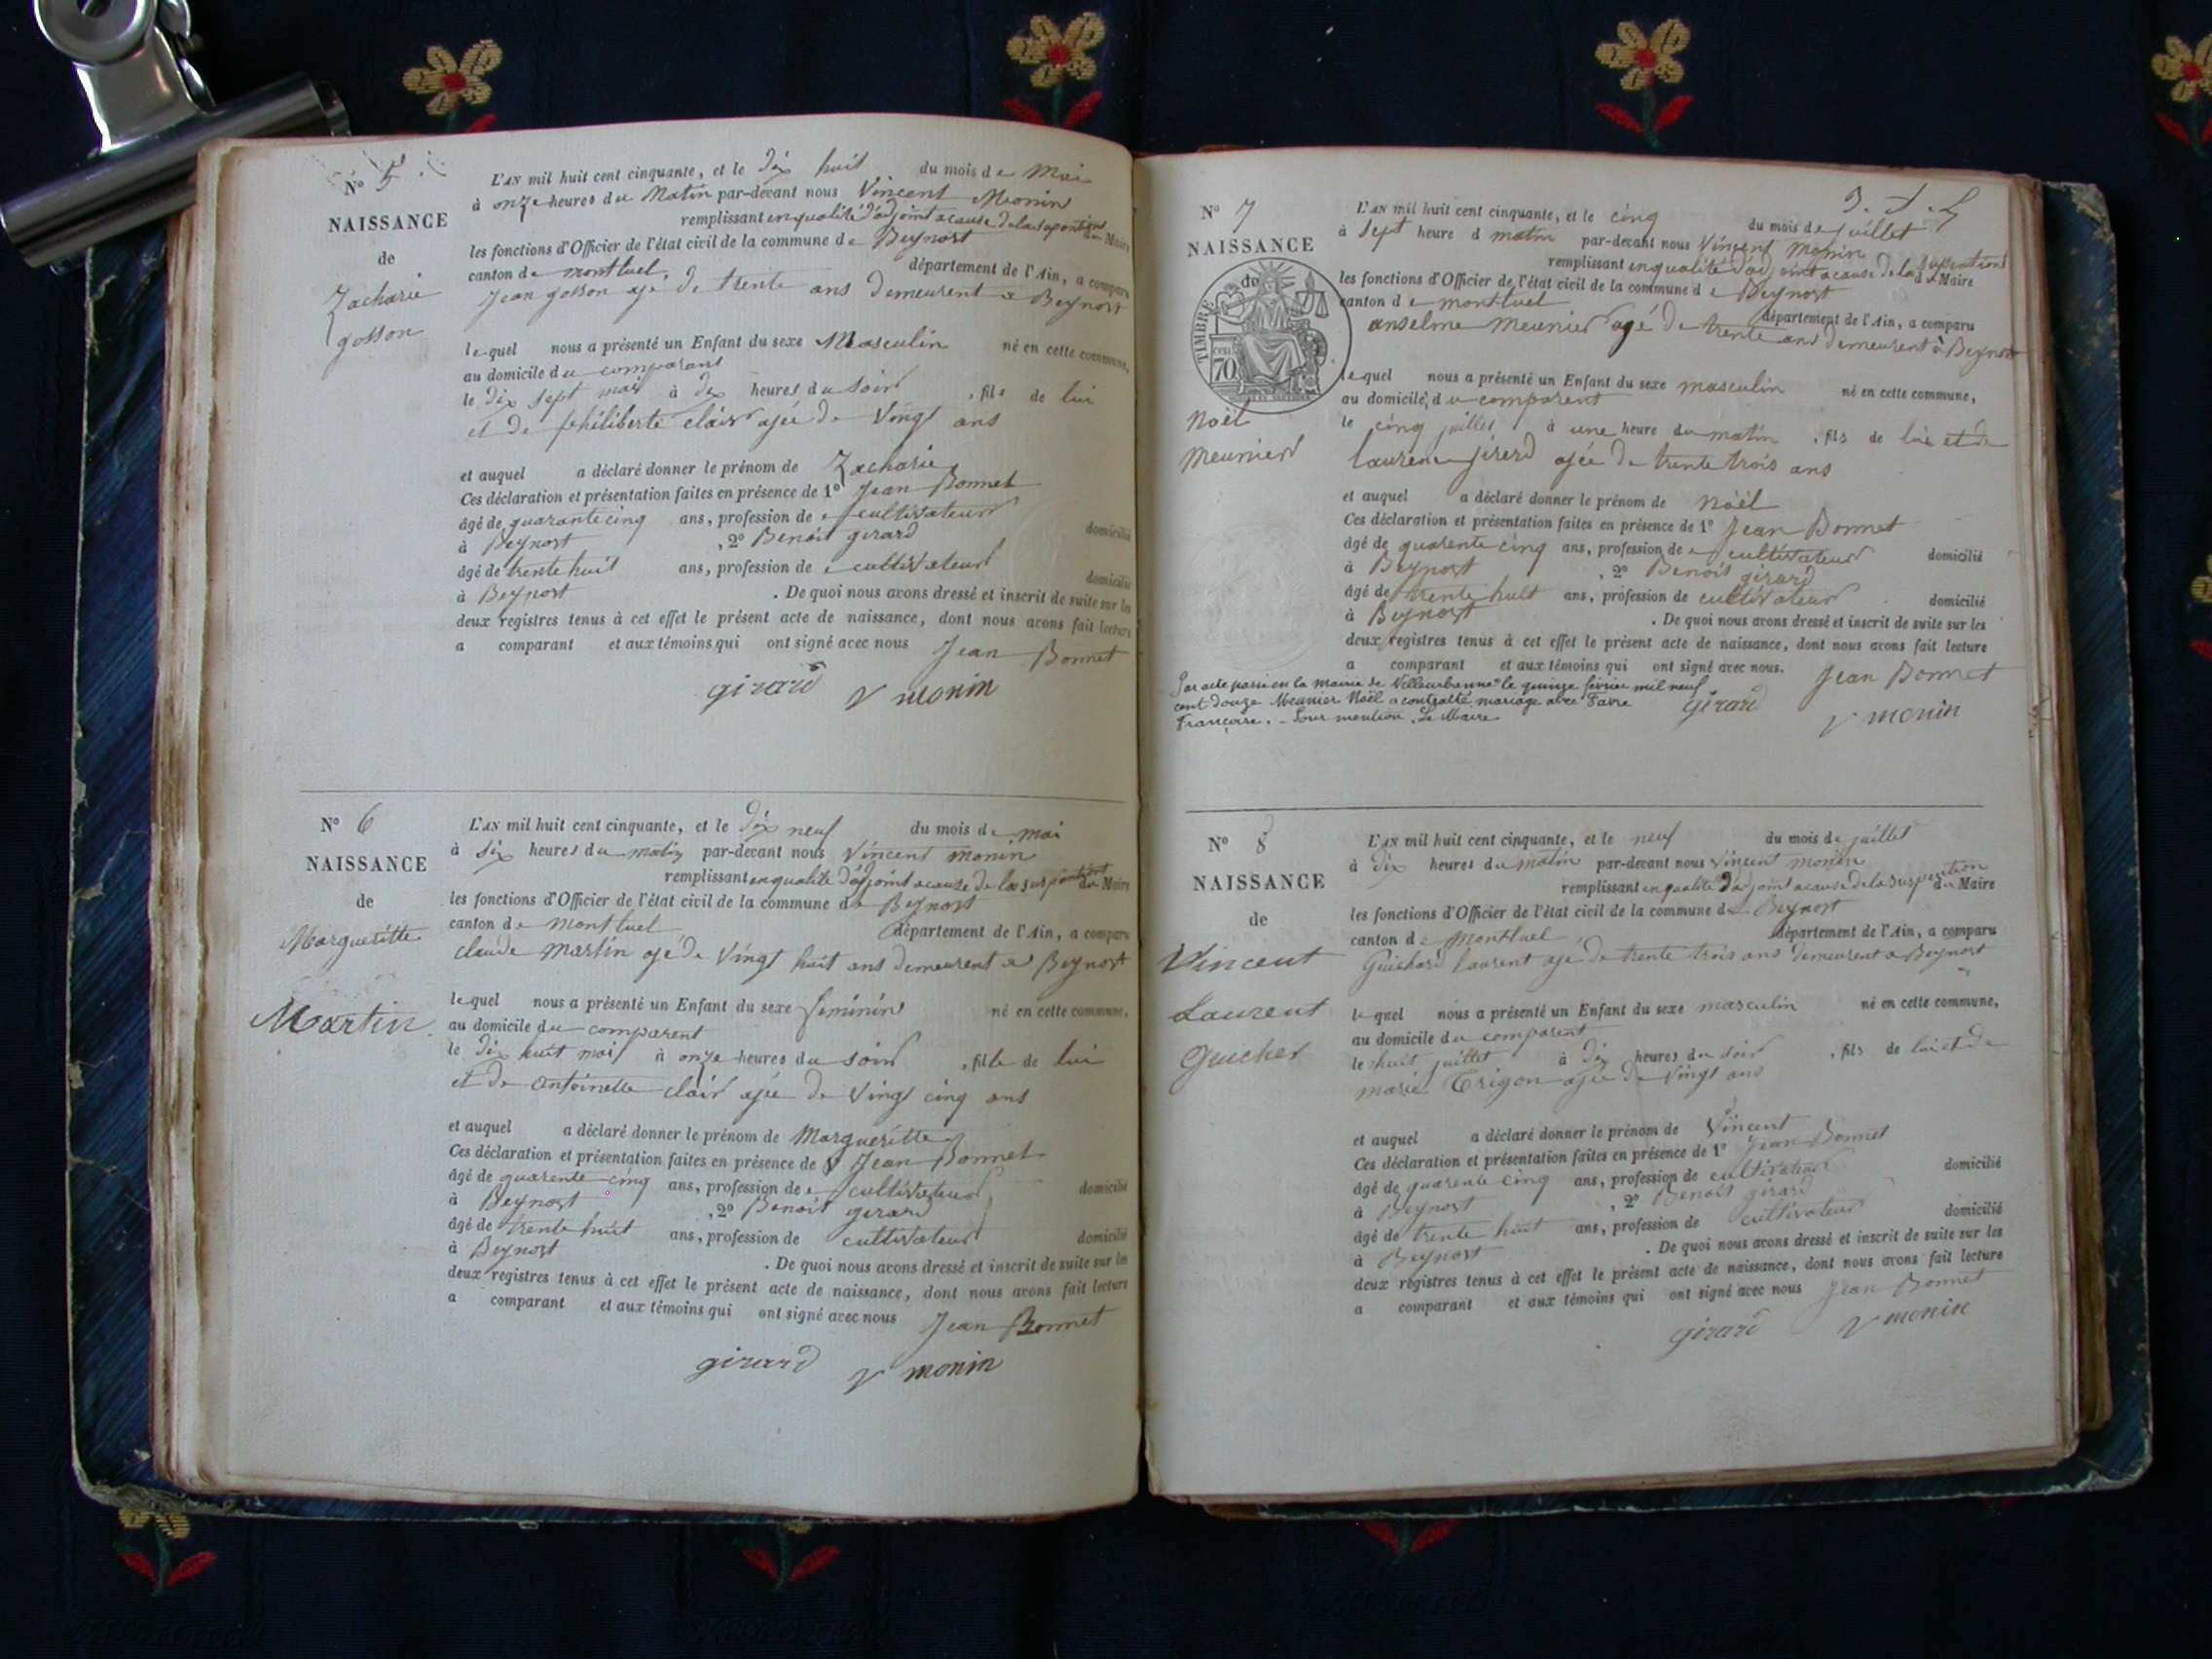 N° 5
NAISSANCE
de
Zacharie
gosson
L'AN mil huit cent cinquante, et le dix huit du mois de Mai
à onze heures du Matin par-devant nous Vincent Monin
remplissant en qualité d'adjoint a cause de la du Maire
les fonctions d'Officier de l'état civil de la commune de Beynost
canton de montluel, département de l'Ain, a comparu
Jean gosson ajé de trente ans demeurent a Beynost
lequel nous a présenté un Enfant du sexe Masculin né en cette commune,
au domicile du comparant
le dix sept mai à dix heures du soir , fils de lui
et de philiberte clair ajée de Vingt ans
et auquel a déclaré donner le prénom de Zacharie
Ces déclaration et présentation faites en présence de 1° Jean Bonnet
âgé de quarante cinq ans, profession de cultivateur domicilié
à Beynost , 2° Benoit girard
âgé de trente huit ans, profession de cultivateur domicilié
à Beynost . De quoi nous avons dressé et inscrit de suite sur les
deux registres tenus à cet effet le présent acte de naissance, dont nous avons fait lecture
a comparant et aux témoins qui ont signé avec nous Jean Bonnet
girard V monin
N° 6
NAISSANCE
de
Margueritte
Martin
L'AN mil huit cent cinquante, et le dix neuf du mois de mai
à six heures du matin par-devant nous Vincent monin
remplissant en qualité d'adjoint a cause de la du Maire
les fonctions d'Officier de l'état civil de la commune de Beynost
canton de montluel département de l'Ain, a comparu
claude martin ajé de Vingt huit ans demeurent a Beynost
lequel nous a présenté un Enfant du sexe feminin né en cette commune,
au domicile du comparent
le dix huit mai à onze heures du soir , fille de lui
et de antoinette clair ajée de Vingt cinq ans
et auquel a déclaré donner le prénom de Margueritte
Ces déclaration et présentation faites en présence de Jean Bonnet
âgé de quarente cinq ans, profession de cultivateur domicilié
à Beynost , 2° Benoit girard
âgé de trente huit ans, profession de cultivateur domicilié
à Beynost . De quoi nous avons dressé et inscrit de suite sur les
deux registres tenus à cet effet le présent acte de naissance, dont nous avons fait lecture
a comparant et aux témoins qui ont signé avec nous Jean Bonnet
girard V monin
N° 7
NAISSANCE
de
TIMBRE
70
Noël
meunier
L'AN mil huit cent cinquante, et le cinq du mois de juillet
à sept heure d matin par-devant nous Vincent monin
remplissant en qualité d'adjoint a cause de la du Maire
les fonctions d'Officier de l'état civil de la commune de Beynost
canton de montluel département de l'Ain, a comparu
anselme meunier agé de trente ans demeurent à Beynost
lequel nous a présenté un Enfant du sexe masculin né en cette commune,
au domicile du comparent
le cinq juillet à une heure du matin , fils de lui et de
laurence ajée de trente trois ans
et auquel a déclaré donner le prénom de Noël
Ces déclaration et présentation faites en présence de 1° Jean Bonnet
âgé de quarente cinq ans, profession de cultivateur domicilié
à Beynost , 2° Benoit girard
âgé de trente huit ans, profession de cultivateur domicilié
à Beynost . De quoi nous avons dressé et inscrit de suite sur les
deux registres tenus à cet effet le présent acte de naissance, dont nous avons fait lecture
a comparant et aux témoins qui ont signé avec nous. Jean Bonnet
girard V monin
Par acte passé en la mairie de Villeurbanne le quinze février mil neuf
cent douze Meunier Noël a contracté mariage avec Favre
Françoise. - Pour mention, Le Maire
N° 8
NAISSANCE
de
Vincent
Laurent
Guicher
L'AN mil huit cent cinquante, et le neuf du mois de juillet
à dix heures du matin par-devant nous Vincent monin
remplissant en qualité d'adjoint a cause de la du Maire
les fonctions d'Officier de l'état civil de la commune de Beynost
canton de Montluel département de l'Ain, a comparu
Guichard laurent ajé de trente trois ans demeurent a Beynost
lequel nous a présenté un Enfant du sexe masculin né en cette commune,
au domicile du comparent
le huit juillet à dix heures du soir , fils de lui et de
marie Trigon ajée de Vingt ans
et auquel a déclaré donner le prénom de Vincent
Ces déclaration et présentation faites en présence de 1° Jean Bonnet
âgé de quarente cinq ans, profession de cultivateur domicilié
à Beynost , 2° Benoit girard
âgé de trente huit ans, profession de cultivateur domicilié
à Beynost . De quoi nous avons dressé et inscrit de suite sur les
deux registres tenus à cet effet le présent acte de naissance, dont nous avons fait lecture
a comparant et aux témoins qui ont signé avec nous Jean Bonnet
girard V monin